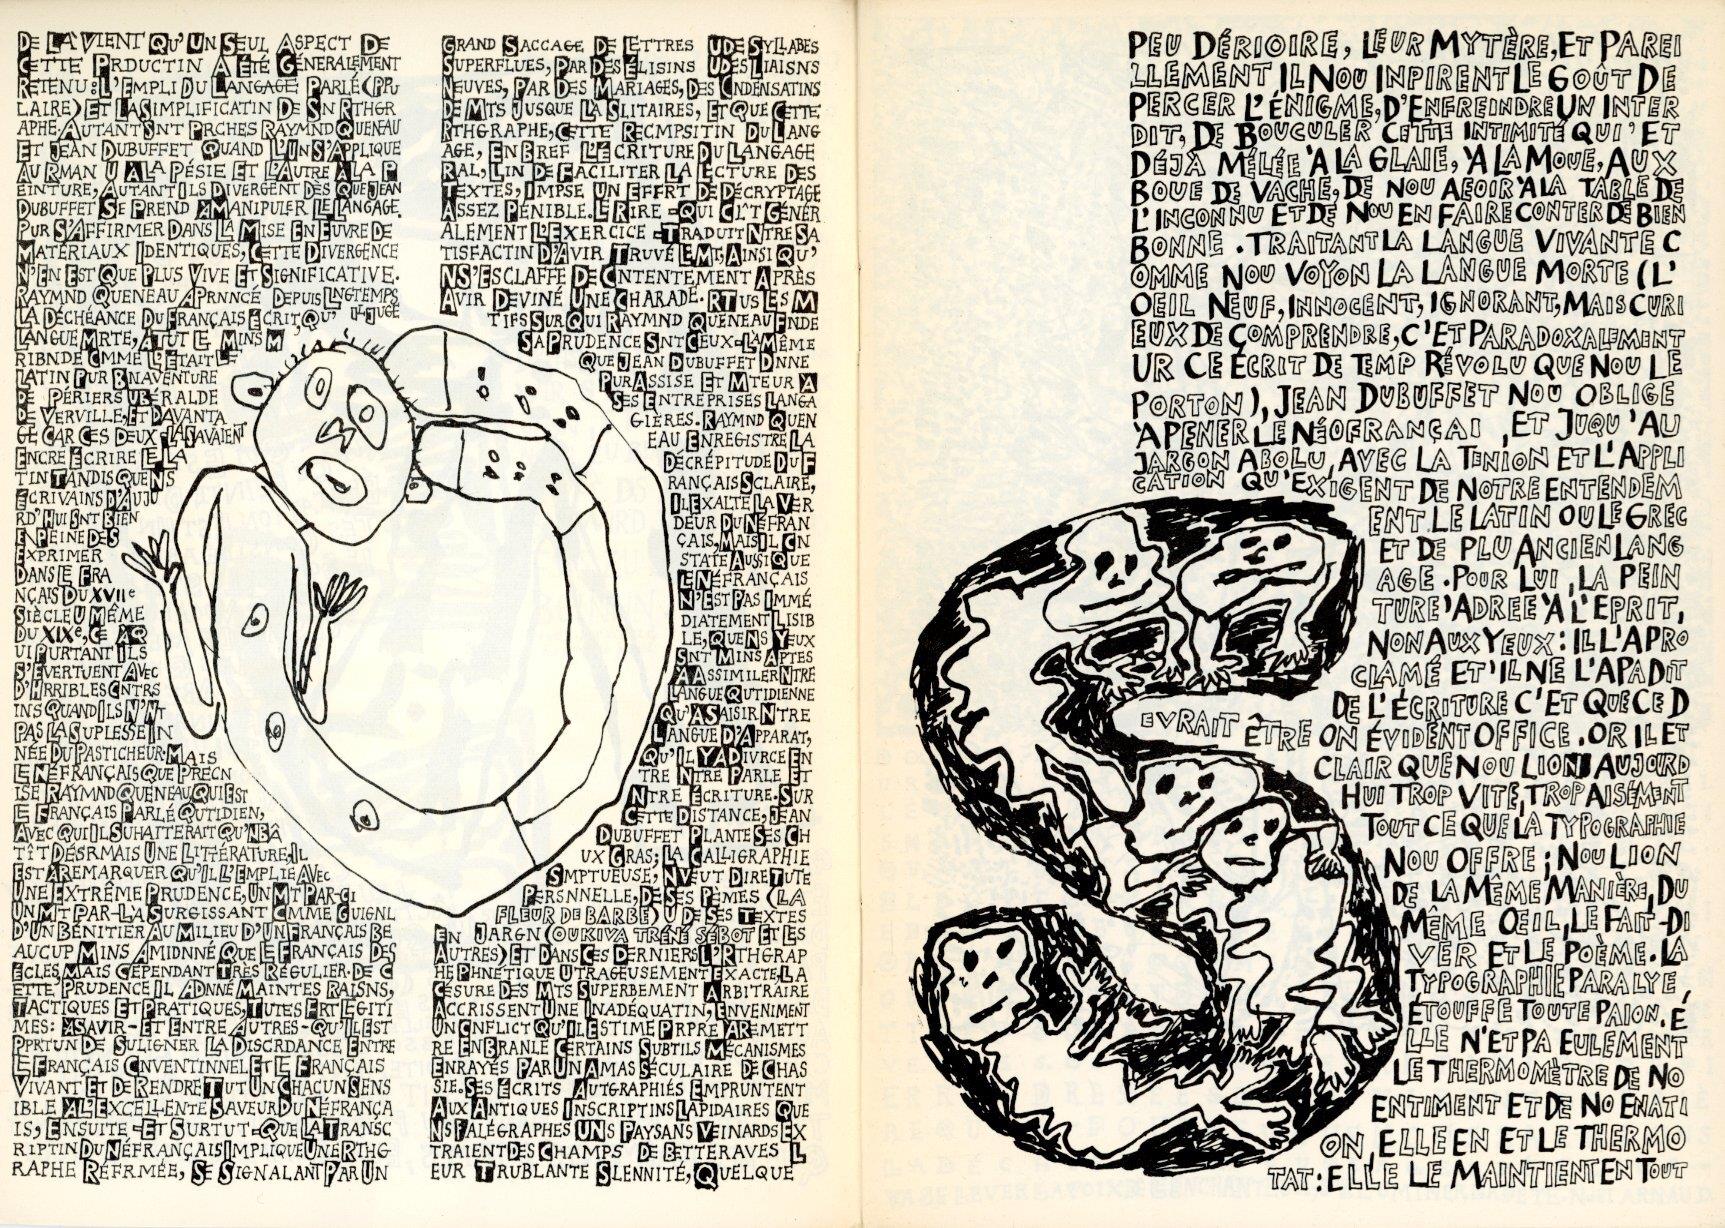 DE LÀ VIENT QU'UN SEUL ASPECT DE
CETTE PRDUCTIN A ÉTÉ GÉNERALEMENT
RETENU: L'EMPLI DU LANGAGE PARLÉ (PPU
LAIRE) ET LA SIMPLIFICATIN DE SN RTHGR
APHE. AUTANT SNT PRCHES RAYMND QUENEAU
ET JEAN DUBUFFET QUAND L'UN S'APPLIQUE
AU RMAN U À LA PÉSIE ET L'AUTRE À LA P
EINTURE, AUTANT ILS DIVERGENT DÈS QUE JEAN
DUBUFFET SE PREND À MANIPULER LE LANGAGE.
PUR S'AFFIRMER DANS LA MISE EN ŒUVRE DE
MATÉRIAUX IDENTIQUES, CETTE DIVERGENCE
N'EN EST QUE PLUS VIVE ET SIGNIFICATIVE.
RAYMND QUENEAU A PRNNCÉ DEPUIS LNGTEMPS
LA DÉCHÉANCE DU FRANÇAIS ÉCRIT, QU' IL JUGE
LANGUE MRTE, À TUT LE MINS M
RIBNDE CMME L'ÉTAIT LE
LATIN PUR BNAVENTURE
DE PÉRIERS U BÉRALDE
DE VERVILLE, ET DAVANTA
GE CAR CES DEUX-LÀ SAVAIENT
ENCRE ÉCRIRE LE LA
TIN TANDIS QUE NS
ÉCRIVAINS D'AUJU
RD'HUI SNT BIEN
EN PEINE DE S
EXPRIMER
DANS LE FRA
NÇAIS DU XVIIe
SIÈCLE U MÊME
DU XIXe, CE À Q
UI PURTANT ILS
S'ÉVERTUENT AVEC
D'HRRIBLES CNTRS
INS QUAND ILS N'NT
PAS LA SUPLESSE IN
NÉE DU PASTICHEUR. MAIS
LE NÉFRANÇAIS QUE PRÉCN
ISE RAYMND QUENEAU, QUI EST
LE FRANÇAIS PARLÉ QUTIDIEN,
AVEC QUI IL SUHAITERAIT QU'N BÂ
TÎT DÉSRMAIS UNE LITTÉRATURE, IL
EST À REMARQUER QU'IL L'EMPLIE AVEC
UNE EXTRÊME PRUDENCE, UN MT PAR-CI
UN MT PAR-LÀ SURGISSANT CMME GUIGNL
D'UN BÉNITIER AU MILIEU D'UN FRANÇAIS BE
AUCUP MINS AMIDNNÉ QUE LE FRANÇAIS DES
ÉCLES, MAIS CEPENDANT TRÈS RÉGULIER. DE C
ETTE PRUDENCE IL A DNNÉ MAINTES RAISNS,
TACTIQUES ET PRATIQUES, TUTES FRT LÉGITI
MES: À SAVIR - ET ENTRE AUTRES - QU'IL EST
PPRTUN DE SULIGNER LA DISCRDANCE ENTRE
LE FRANÇAIS CNVENTINNEL ET LE FRANÇAIS
VIVANT ET DE RENDRE TUT UN CHACUN SENS
IBLE À L'EXCELLENTE SAVEUR DU NÉFRANÇA
IS, ENSUITE - ET SURTUT - QUE LA TRANSC
RIPTIN DU NÉFRANÇAIS IMPLIQUE UNE RTHG
RAPHE RÉFRMÉE, SE SIGNALANT PAR UN
GRAND SACCAGE DE LETTRES U DE SYLLABES
SUPERFLUES, PAR DES ÉLISINS U DES LIAISNS
NEUVES, PAR DES MARIAGES, DES CNDENSATINS
DE MTS JUSQUE LÀ SLITAIRES, ET QUE CETTE
RTHGRAPHE, CETTE RECMPSITIN DU LANG
AGE, EN BREF L'ÉCRITURE DU LANGAGE
RAL, LIN DE FACILITER LA LECTURE DES
TEXTES, IMPSE UN EFFRT DE DÉCRYPTAGE
ASSEZ PÉNIBLE. LE RIRE - QUI CLÔT GÉNÉR
ALEMENT L'EXERCICE - TRADUIT NTRE SA
TISFACTIN D'AVIR TRUVÉ LE MT, AINSI QU'
N S'ESCLAFFE DE CNTENTEMENT APRÈS
AVIR DEVINÉ UNE CHARADE. R TUS LES M
TIFS SUR QUI RAYMND QUENEAU FNDE
SA PRUDENCE SNT CEUX-LÀ MÊME
QUE JEAN DUBUFFET DNNE
PUR ASSISE ET MTEUR À
SES ENTREPRISES LANGA
GIÈRES. RAYMND QUEN
EAU ENREGISTRE LA
DÉCRÉPITUDE DU F
RANÇAIS SCLAIRE,
IL EXALTE LA VER
DEUR DU NÉFRAN
ÇAIS, MAIS IL CN
STATE AUSSI QUE
LE NÉFRANÇAIS
N'EST PAS IMMÉ
DIATEMENT LISIB
LE, QUE NS YEUX
SNT MINS APTES
À ASSIMILER NTRE
LANGUE QUTIDIENNE
QU'À SAISIR NTRE
LANGUE D'APPARAT,
QU'IL Y A DIVRCE EN
TRE NTRE PARLE ET
NTRE ÉCRITURE. SUR
CETTE DISTANCE, JEAN
DUBUFFET PLANTE SES CH
UX GRAS; LA CALLIGRAPHIE
SMPTUEUSE, N VEUT DIRE TUTE
PERSNNELLE, DE SES PÈMES (LA
FLEUR DE BARBE) U DE SES TEXTES
EN JARGN (OUKIVA TRÉNÉ SÉBOT ET LES
AUTRES) ET DANS CES DERNIERS L'RTHGRAP
HE PHNÉTIQUE UTRAGEUSEMENT EXACTE, LA
CÉSURE DES MTS SUPERBEMENT ARBITRAIRE
ACCRISSENT UNE INADÉQUATIN, ENVENIMENT
UN CNFLICT QU'IL ESTIME PRPRE À REMETT
RE EN BRANLE CERTAINS SUBTILS MÉCANISMES
ENRAYÉS PAR UN AMAS SÉCULAIRE DE CHAS
SIE. SES ÉCRITS AUTGRAPHIÉS EMPRUNTENT
AUX ANTIQUES INSCRIPTINS LAPIDAIRES QUE
NS PALÉGRAPHES U NS PAYSANS VEINARDS EX
TRAIENT DES CHAMPS DE BETTERAVES L
EUR TRUBLANTE SLENNITÉ, QUELQUE
PEU DÉRIOIRE, LEUR MYTÈRE, ET PAREI
LLEMENT IL NOU INPIRENT LE GOÛT DE
PERCER L'ÉNIGME, D'ENFREINDRE UN INTER
DIT, DE BOUCULER CETTE INTIMITÉ QUI 'ET
DÉJÀ MÊLÉE 'A LA GLAIE, 'A LA MOUE, AUX
BOUE DE VACHE, DE NOU AEOIR 'A LA TABLE DE
L'INCONNU ET DE NOU EN FAIRE CONTER DE BIEN
BONNE . TRAITANT LA LANGUE VIVANTE C
OMME NOU VOYON LA LANGUE MORTE (L'
OEIL NEUF, INNOCENT, IGNORANT, MAIS CURI
EUX DE COMPRENDRE, C'ET PARADOXALEMENT
UR CE ÉCRIT DE TEMP RÉVOLU QUE NOU LE
PORTON), JEAN DUBUFFET NOU OBLIGE
'A PENER LE NÉOFRANÇAI , ET JUQU 'AU
JARGON ABOLU, AVEC LA TENION ET L'APPLI
CATION QU'EXIGENT DE NOTRE ENTENDEM
ENT LE LATIN OU LE GREC
ET DE PLU ANCIEN LANG
AGE . POUR LUI , LA PEIN
TURE 'ADREE 'A L'EPRIT,
NON AUX YEUX : IL L'A PRO
CLAMÉ ET 'IL NE L'A PA DIT
DE L'ÉCRITURE C'ET QUE CE D
EVRAIT ÊTRE ON ÉVIDENT OFFICE . OR IL ET
CLAIR QUE NOU LION AUJOURD
HUI TROP VITE, TROP AISÉMENT
TOUT CE QUE LA TYPOGRAPHIE
NOU OFFRE ; NOU LION
DE LA MÊME MANIÈRE, DU
MÊME ŒIL, LE FAIT-DI
VER ET LE POÈME . LA
TYPOGRAPHIE PARALYE ,
ÉTOUFFE TOUTE PAION. É
LLE N'ET PA EULEMENT
LE THERMOMÈTRE DE NO
ENTIMENT ET DE NO ENATI
ON, ELLE EN ET LE THERMO
TAT : ELLE LE MAINTIENT EN TOUT